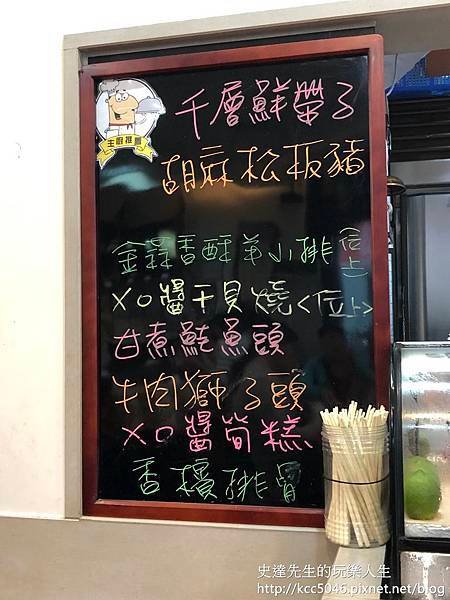 千層鮮帶子
胡麻松板豬
主廚推薦
金蒜香酥羊小排<位上>
XO醬干貝燒<位上>
甘煮鮭魚頭
牛肉獅子頭
XO醬筍糕
香檳排骨
史達先生的玩樂人生
http://kcc5046.pixnet.net/blog